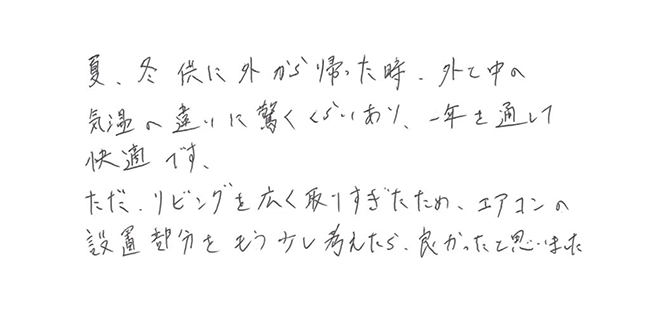 夏、冬供に外から帰った時、外と中の
気温の違いに驚くくらいあり、一年を通して
快適です、
ただ、リビングを広く取りすぎたため、エアコンの
設置部分をもう少し考えたら、良かったと思いました